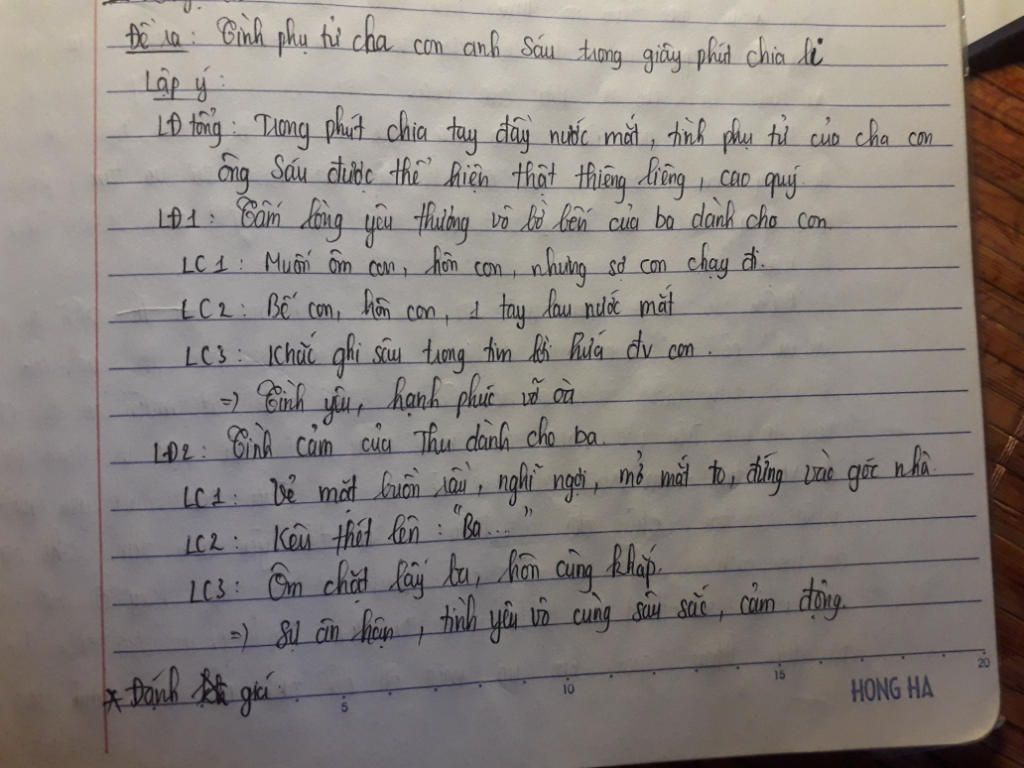 Đề ra: Tình phụ tử cha con anh Sáu trong giây phút chia li
Lập ý:
LĐ tổng: Trong phút chia tay đầy nước mắt, tình phụ tử của cha con
ông Sáu được thể hiện thật thiêng liêng, cao quý.
LĐ1: Tấm lòng yêu thương vô bờ bến của ba dành cho con.
LC1: Muốn ôm con, hôn con, nhưng sợ con chạy đi.
LC2: Bế con, hôn con, 1 tay lau nước mắt
LC3: Khắc ghi sâu trong tim lời hứa đv con.
=> Tình yêu, hạnh phúc vỡ oà
LĐ2: Tình cảm của Thu dành cho ba.
LC1: Vẻ mặt buồn rầu, nghĩ ngợi, mở mắt to, đứng vào góc nhà.
LC2: Kêu thét lên: "Ba..."
LC3: Ôm chặt lấy ba, hôn cùng khắp.
=> Sự ân hận, tình yêu vô cùng sâu sắc, cảm động.
* Đánh giá:
5 10 15 20
HONG HA